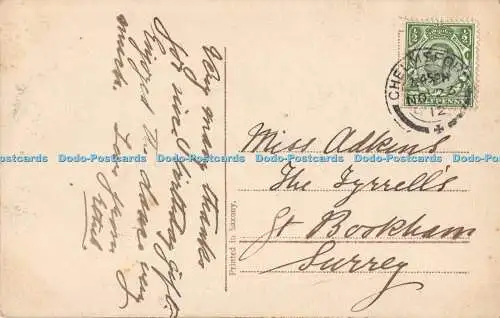 Very many thanks
for nice Birthday gift.
Enjoyed the dance very
much. Love from
Printed in Saxony.
CHELMSFORD
NO
12
½
½
HALFPENNY
Miss Adkens
The Tyrrell's
Gt Bookham
Surrey
Dodo-Postcards Dodo-Postcards Dodo-Postcards Dodo-Postcards Dodo-Postcards Dodo-Postcards